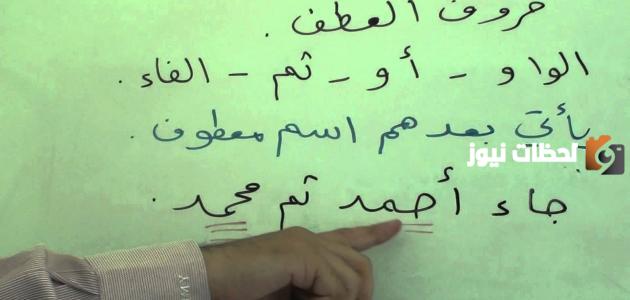 حروف العطف .
الواو - أو - ثم - الفاء .
يأتي بعدهم اسم معطوف .
لحظات نيوز
جاء أحمد ثم محمد .